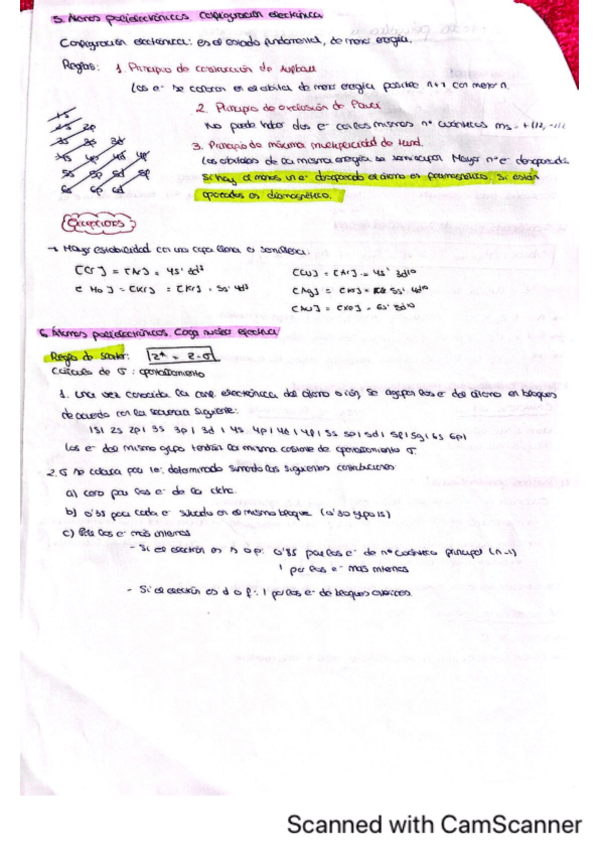 5. Átomos polielectrónicos. Configuración electrónica
Configuración electrónica: es el estado fundamental, de menor energía.
Reglas: 1. Principio de construcción de Aufbau
Los e⁻ se colocan en el orbital de menor energía posible n+l con menor n.
2. Principio de exclusión de Pauli
No puede haber dos e⁻ con los mismos nº cuánticos ms = +1/2, -1/2
3. Principio de máxima multiplicidad de Hund.
Los orbitales de la misma energía se semiocupan. Mayor nº e⁻ desapareado.
Si hay al menos un e⁻ desapareado el átomo es paramagnético. Si están
apareados es diamagnético.
1s
2s 2p
3s 3p 3d
4s 4p 4d 4f
5s 5p 5d 5f
6s 6p 6d
Excepciones
→ Mayor estabilidad con una capa llena o semillena.
[Cr] = [Ar] = 4s¹ 3d⁵
[Mo] = [Kr] = [Kr] 5s¹ 4d⁵
[Cu] = [Ar] = 4s¹ 3d¹⁰
[Ag] = [Kr] = 5s¹ 4d¹⁰
[Au] = [Xe] = 6s¹ 5d¹⁰
6. Átomos polielectrónicos. Carga nuclear efectiva
Regla de Slater: Z* = Z - σ
Cálculo de σ: apantallamiento
1. Una vez conocida la conf. electrónica del átomo o ión, se agrupan los e⁻ del átomo en bloques
de acuerdo con la secuencia siguiente:
1s| 2s 2p| 3s 3p| 3d| 4s 4p| 4d| 4f| 5s 5p| 5d| 5f| 5g| 6s 6p|
Los e⁻ del mismo grupo tendrán la misma constante de apantallamiento σ.
2. σ se calcula para 1e⁻ determinado sumando las siguientes contribuciones:
a) cero para los e⁻ de la dcha.
b) 0'35 para cada e⁻ situado en el mismo bloque (0'30 grupo 1s)
c) Para los e⁻ más internos
- Si el electrón es s o p: 0'85 para los e⁻ de nº cuántico principal (n-1)
1 para los e⁻ más internos
- Si el electrón es d o f: 1 para los e⁻ de bloques anteriores.
Scanned with CamScanner